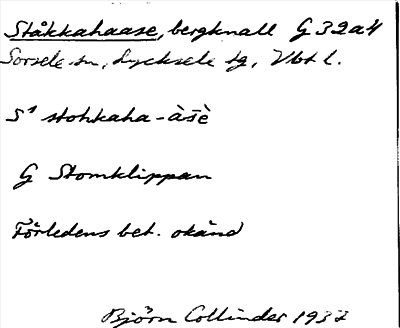 Ståkkahaase, bergknall G 32a4
Sorsele sn, Lycksele tg, Vbt l.
S¹ stohkaha-àšè
G Stomklippan
Förledens bet. okänd
Björn Collinder 1937